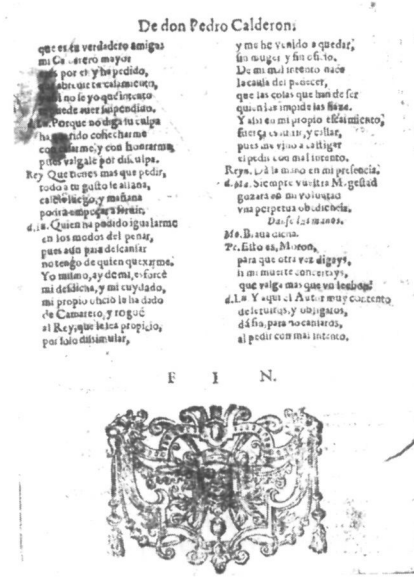 De don Pedro Calderon.
que es tu verdadero amigo
mi Camarero mayor
por el, y ha pedido,
casamiento,
no se yo que intento
puede auer suspendido.
Porque no diga tu culpa
querido cohecharme
con casarme, y con honrarme,
pues valgale por disculpa.
Rey Que tienes mas que pedir,
todo a tu gusto se allana,
casese luego, y mañana
podra empeçar a seruir.
d.Lu. Quien ha podido igualarme
en los modos del penar,
pues aun para descansar
no tengo de quien quexarme.
Yo mismo, ay de mi, esforcè
mi desdicha, y mi cuydado,
mi propio oficio le ha dado
de Camarero, y roguè
al Rey, que le sea propicio,
por solo dissimular,
y me he venido a quedar,
sin muger, y sin oficio.
De mi mal intento nace
la causa del padecer,
que las cosas que han de ser
quien las impide las haze.
Y assi en mi propio escarmiento,
fuerça es sufrir, y callar,
pues me vino a castigar
el pedir con mal intento.
Reyn. Dà la mano en mi presencia.
d.Ma. Siempre vuestra Magestad
gozarà en mi voluntad
vna perpetua obediencia.
Danse las manos.
Mo. Braua dicha.
Pe. Esto es, Moron,
para que otra vez digays,
si mi muerte
que valga mas que vn lechon?
d.Lu. Y aqui el Autor muy contento
de seruiros, y obligaros,
dà fin, para no cansaros,
al pedir con mal intento.
F I N.